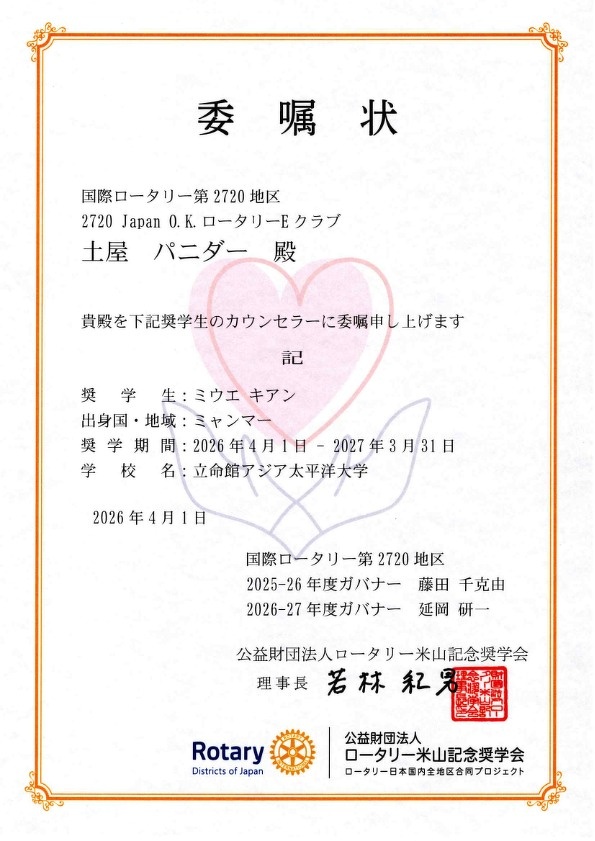 委嘱状
国際ロータリー第2720地区
2720 Japan O.K.ロータリーEクラブ
土屋 パニダー 殿
貴殿を下記奨学生のカウンセラーに委嘱申し上げます
記
奨学生：ミウエ キアン
出身国・地域：ミャンマー
奨学期間：2026年4月1日 - 2027年3月31日
学校名：立命館アジア太平洋大学
2026年4月1日
国際ロータリー第2720地区
2025-26年度ガバナー 藤田 千克由
2026-27年度ガバナー 延岡 研一
公益財団法人ロータリー米山記念奨学会
理事長 若林 紀男
Rotary
Districts of Japan
公益財団法人
ロータリー米山記念奨学会
ロータリー日本国内全地区合同プロジェクト